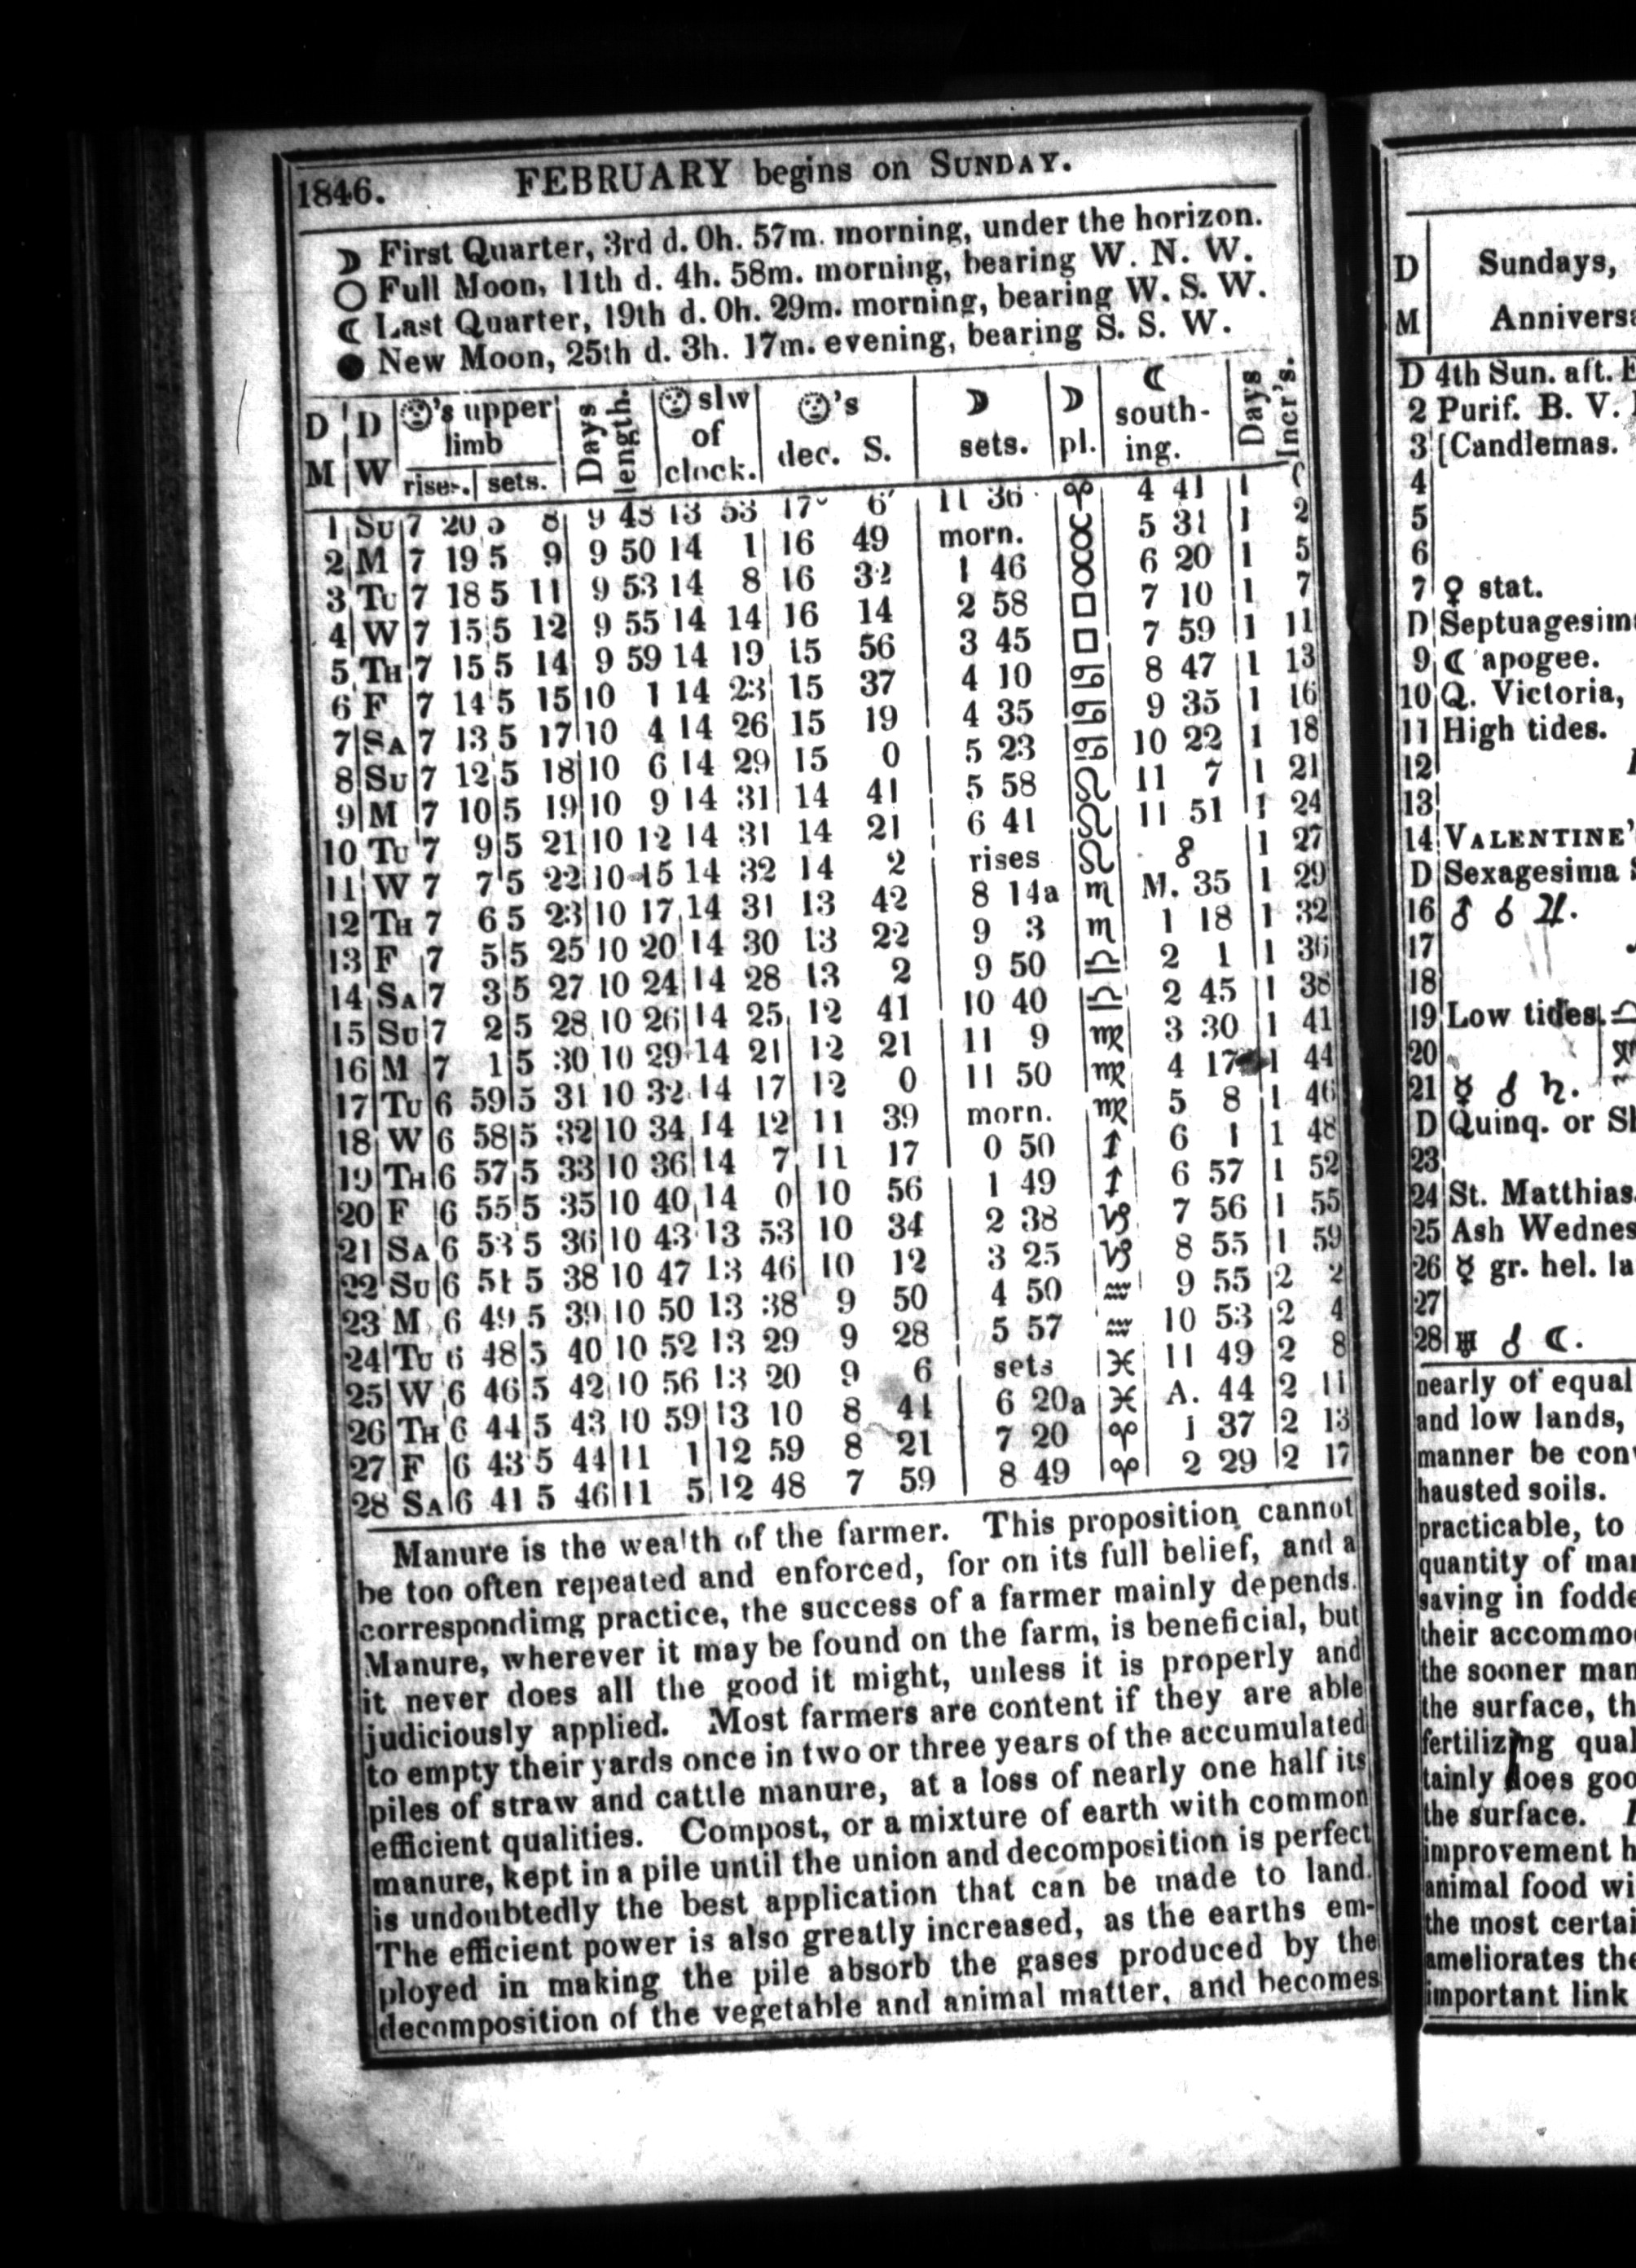 1846. FEBRUARY begins on SUNDAY.
☽ First Quarter, 3rd d. 0h. 57m. morning, under the horizon.
○ Full Moon, 11th d. 4h. 58m. morning, bearing W. N. W.
☾ Last Quarter, 19th d. 0h. 29m. morning, bearing W. S. W.
● New Moon, 25th d. 3h. 17m. evening, bearing S. S. W.
D M | D W | ☉'s upper limb rises. | sets. | Days length. | ☉ slw of clock. | ☉'s dec. S. | ☽ sets. | ☽ pl. | ☾ southing. | Days Incr's.
1 SU 7 20 5 8 9 48 13 53 17° 6' 11 36 ♈ 4 41 1
2 M 7 19 5 9 9 50 14 1 16 49 morn. ♉ 5 31 1 2
3 TU 7 18 5 11 9 53 14 8 16 32 1 46 ♉ 6 20 1 5
4 W 7 15 5 12 9 55 14 14 16 14 2 58 □ 7 10 1 7
5 TH 7 15 5 14 9 59 14 19 15 56 3 45 □ 7 59 1 11
6 F 7 14 5 15 10 1 14 23 15 37 4 10 ♋ 8 47 1 13
7 SA 7 13 5 17 10 4 14 26 15 19 4 35 ♋ 9 35 1 16
8 SU 7 12 5 18 10 6 14 29 15 0 5 23 ♋ 10 22 1 18
9 M 7 10 5 19 10 9 14 31 14 41 5 58 ♌ 11 7 1 21
10 TU 7 9 5 21 10 12 14 31 14 21 6 41 ♌ 11 51 1 24
11 W 7 7 5 22 10 15 14 32 14 2 rises ♌ ☍ 1 27
12 TH 7 6 5 23 10 17 14 31 13 42 8 14a ♏ M. 35 1 29
13 F 7 5 5 25 10 20 14 30 13 22 9 3 ♏ 1 18 1 32
14 SA 7 3 5 27 10 24 14 28 13 2 9 50 ♎ 2 1 1 36
15 SU 7 2 5 28 10 26 14 25 12 41 10 40 ♎ 2 45 1 38
16 M 7 1 5 30 10 29 14 21 12 21 11 9 ♍ 3 30 1 41
17 TU 6 59 5 31 10 32 14 17 12 0 11 50 ♍ 4 17 1 44
18 W 6 58 5 32 10 34 14 12 11 39 morn. ♍ 5 8 1 46
19 TH 6 57 5 33 10 36 14 7 11 17 0 50 ♐ 6 1 1 48
20 F 6 55 5 35 10 40 14 0 10 56 1 49 ♐ 6 57 1 52
21 SA 6 53 5 36 10 43 13 53 10 34 2 38 ♑ 7 56 1 55
22 SU 6 51 5 38 10 47 13 46 10 12 3 25 ♑ 8 55 1 59
23 M 6 49 5 39 10 50 13 38 9 50 4 50 ♒ 9 55 2 2
24 TU 6 48 5 40 10 52 13 29 9 28 5 57 ♒ 10 53 2 4
25 W 6 46 5 42 10 56 13 20 9 6 sets ♓ 11 49 2 8
26 TH 6 44 5 43 10 59 13 10 8 44 6 20a ♓ A. 44 2 11
27 F 6 43 5 44 11 1 12 59 8 21 7 20 ♈ 1 37 2 13
28 SA 6 41 5 46 11 5 12 48 7 59 8 49 ♈ 2 29 2 17
Manure is the wealth of the farmer. This proposition cannot
be too often repeated and enforced, for on its full belief, and a
correspondimg practice, the success of a farmer mainly depends.
Manure, wherever it may be found on the farm, is beneficial, but
it never does all the good it might, unless it is properly and
judiciously applied. Most farmers are content if they are able
to empty their yards once in two or three years of the accumulated
piles of straw and cattle manure, at a loss of nearly one half its
efficient qualities. Compost, or a mixture of earth with common
manure, kept in a pile until the union and decomposition is perfect
is undoubtedly the best application that can be made to land.
The efficient power is also greatly increased, as the earths em-
ployed in making the pile absorb the gases produced by the
decomposition of the vegetable and animal matter, and becomes
D M Sundays,
Annivers
D 4th Sun. aft. E
2 Purif. B. V.
3 [Candlemas.
4
5
6
7 ♀ stat.
D Septuagesim
9 ☾ apogee.
10 Q. Victoria,
11 High tides.
12
13
14 VALENTINE'
D Sexagesima S
16 ♂ ☌ ♃.
17
18
19 Low tides. ♎
20
21 ☿ ☌ ♄.
D Quinq. or Sh
23
24 St. Matthias.
25 Ash Wednes
26 ☿ gr. hel. la
27
28 ♅ ☌ ☾.
nearly of equal
and low lands,
manner be con
hausted soils.
practicable, to
quantity of ma
saving in fodde
their accommo
the sooner man
the surface, th
fertilizing qual
tainly does goo
the surface.
improvement h
animal food wi
the most certai
ameliorates the
important link